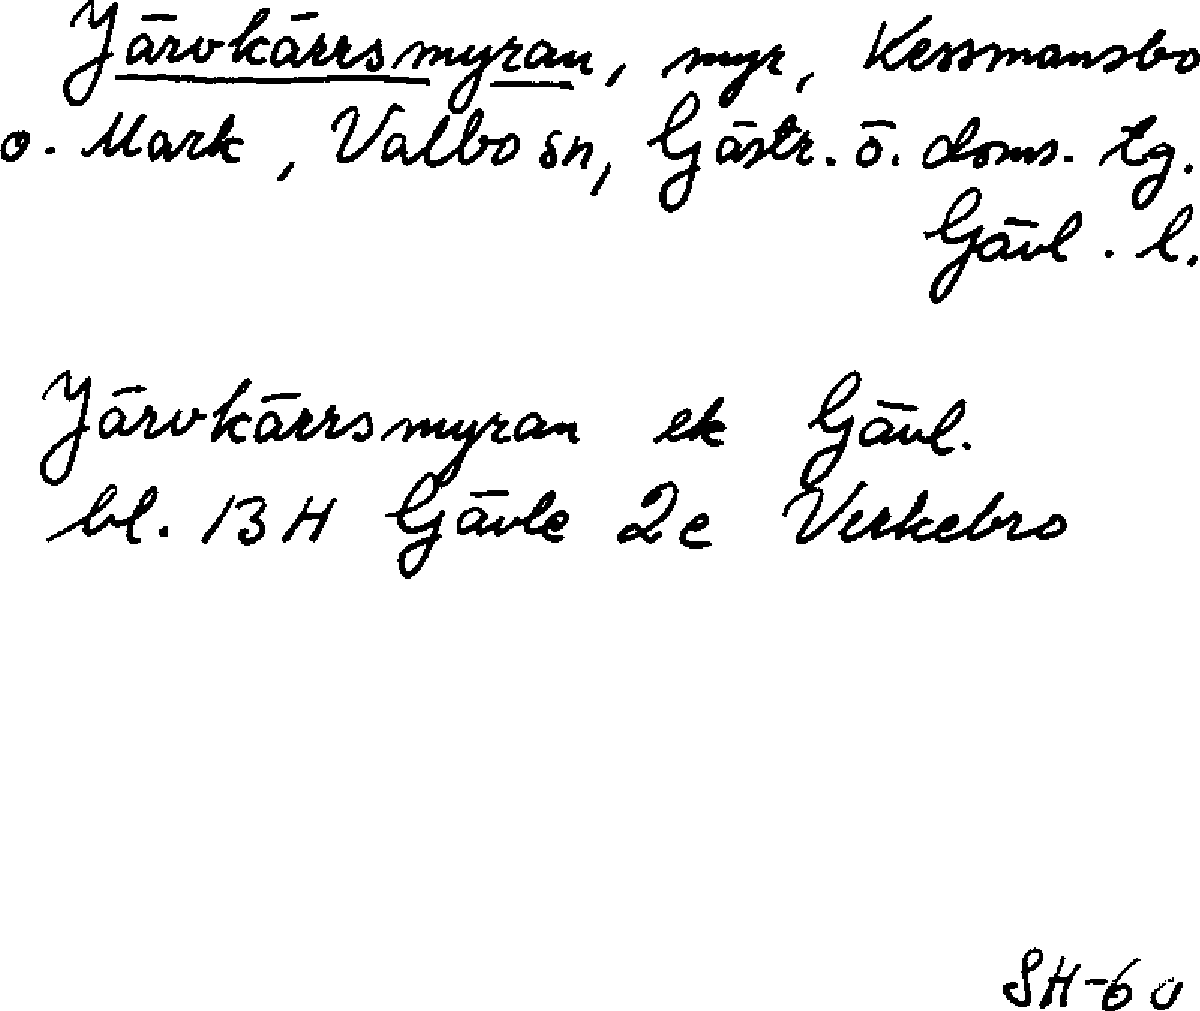 Järvkärrsmyran, myr, Kessmansbo
o. Mark, Valbo sn, Gästr. ö. doms. tg.
Gävl. l.
Järvkärrsmyran ek Gävl.
bl. 13 H Gävle 2c Verkebro
SH-60